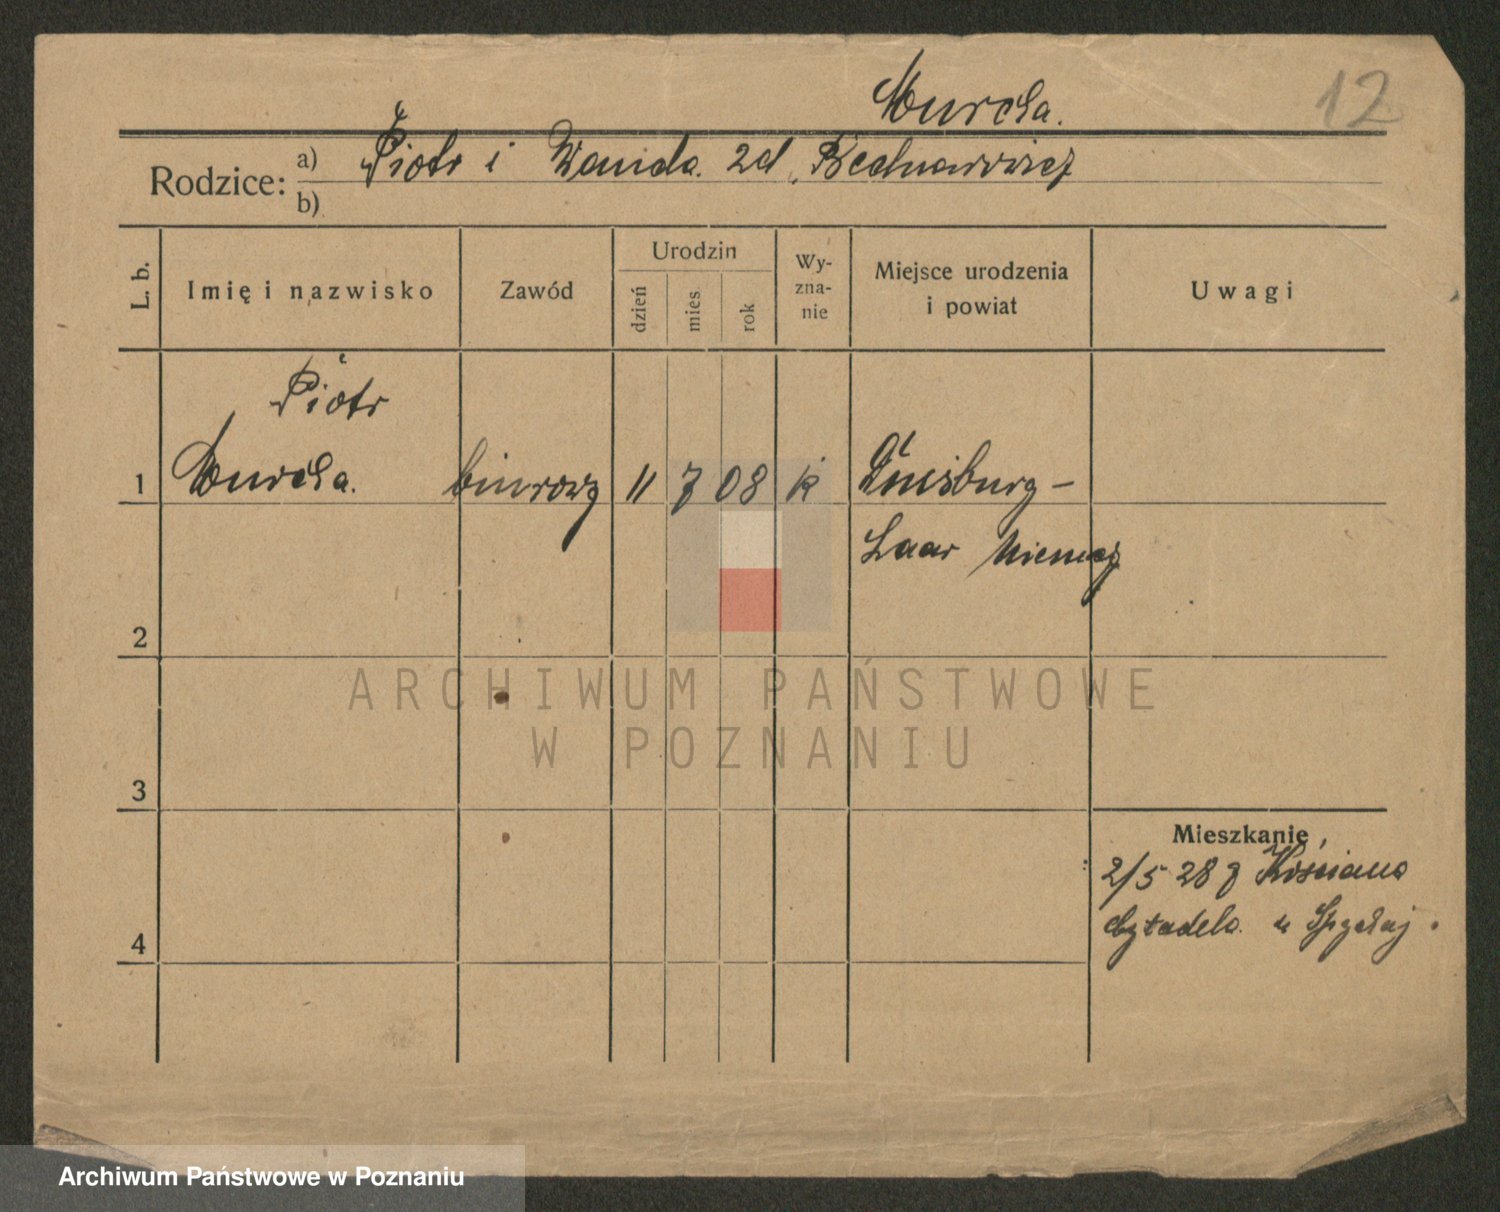 Murcha.
12
Rodzice: a) Piotr i Wanda. zd. Bednarowicz
b)
L. b. Imię i nazwisko Zawód Urodzin dzień mies rok Wy-zna-nie Miejsce urodzenia i powiat Uwagi
Piotr
1 Murcha. biurowy 11 7 08 k Duisburg -
Laar Niemcy
2
ARCHIWUM PAŃSTWOWE
W POZNANIU
3
Mieszkanie
2/5 28 z Kościana
4 Cytadela u
Archiwum Państwowe w Poznaniu